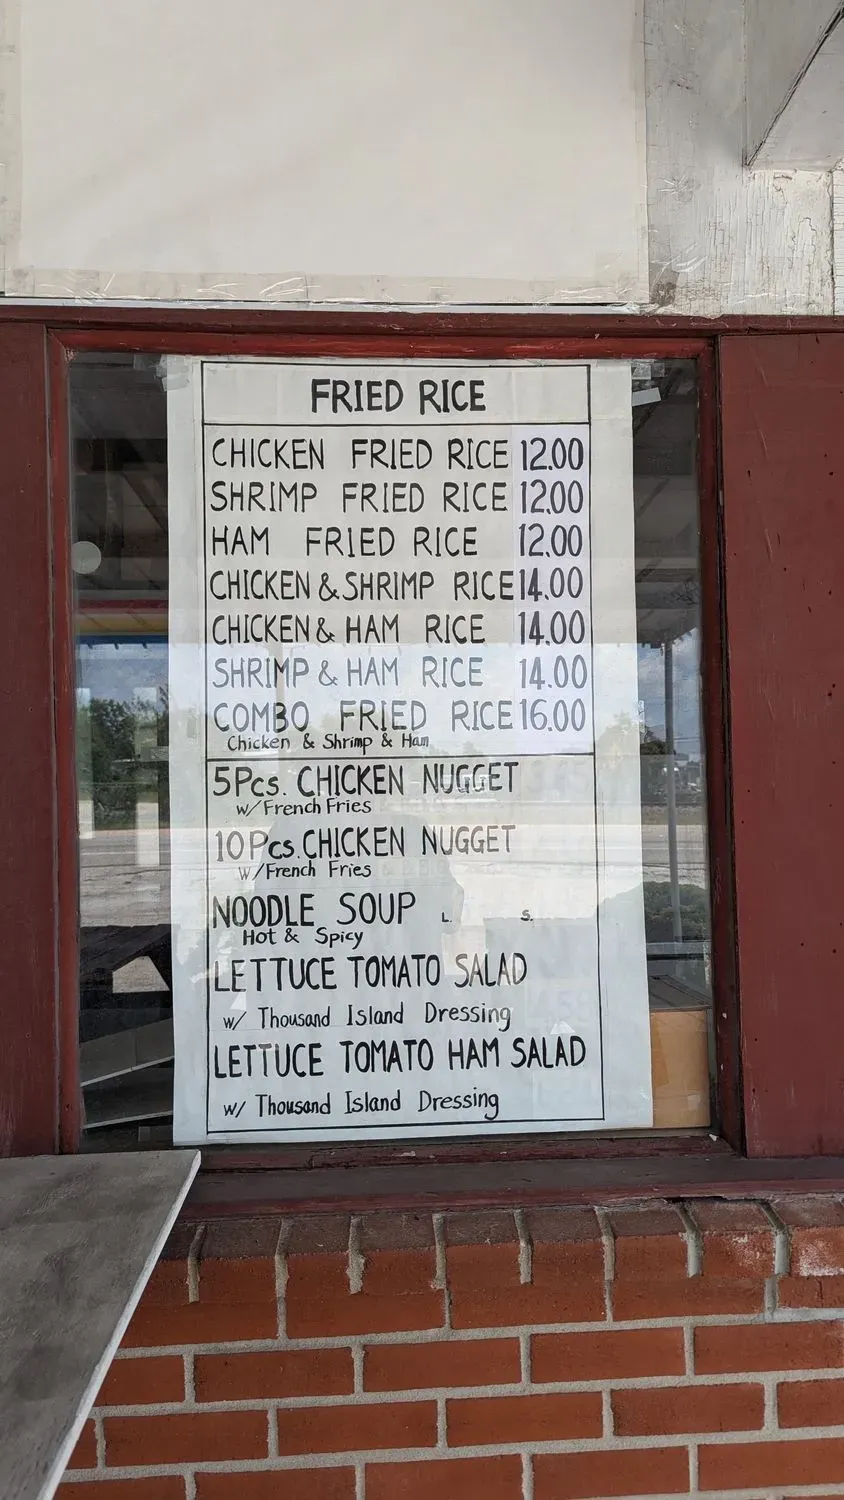 FRIED RICE
CHICKEN FRIED RICE 12.00
SHRIMP FRIED RICE 12.00
HAM FRIED RICE 12.00
CHICKEN & SHRIMP RICE 14.00
CHICKEN & HAM RICE 14.00
SHRIMP & HAM RICE 14.00
COMBO FRIED RICE 16.00
Chicken & Shrimp & Ham
5Pcs. CHICKEN NUGGET
w/French Fries
10Pcs. CHICKEN NUGGET
w/French Fries
NOODLE SOUP L. S.
Hot & Spicy
LETTUCE TOMATO SALAD
w/ Thousand Island Dressing
LETTUCE TOMATO HAM SALAD
w/ Thousand Island Dressing